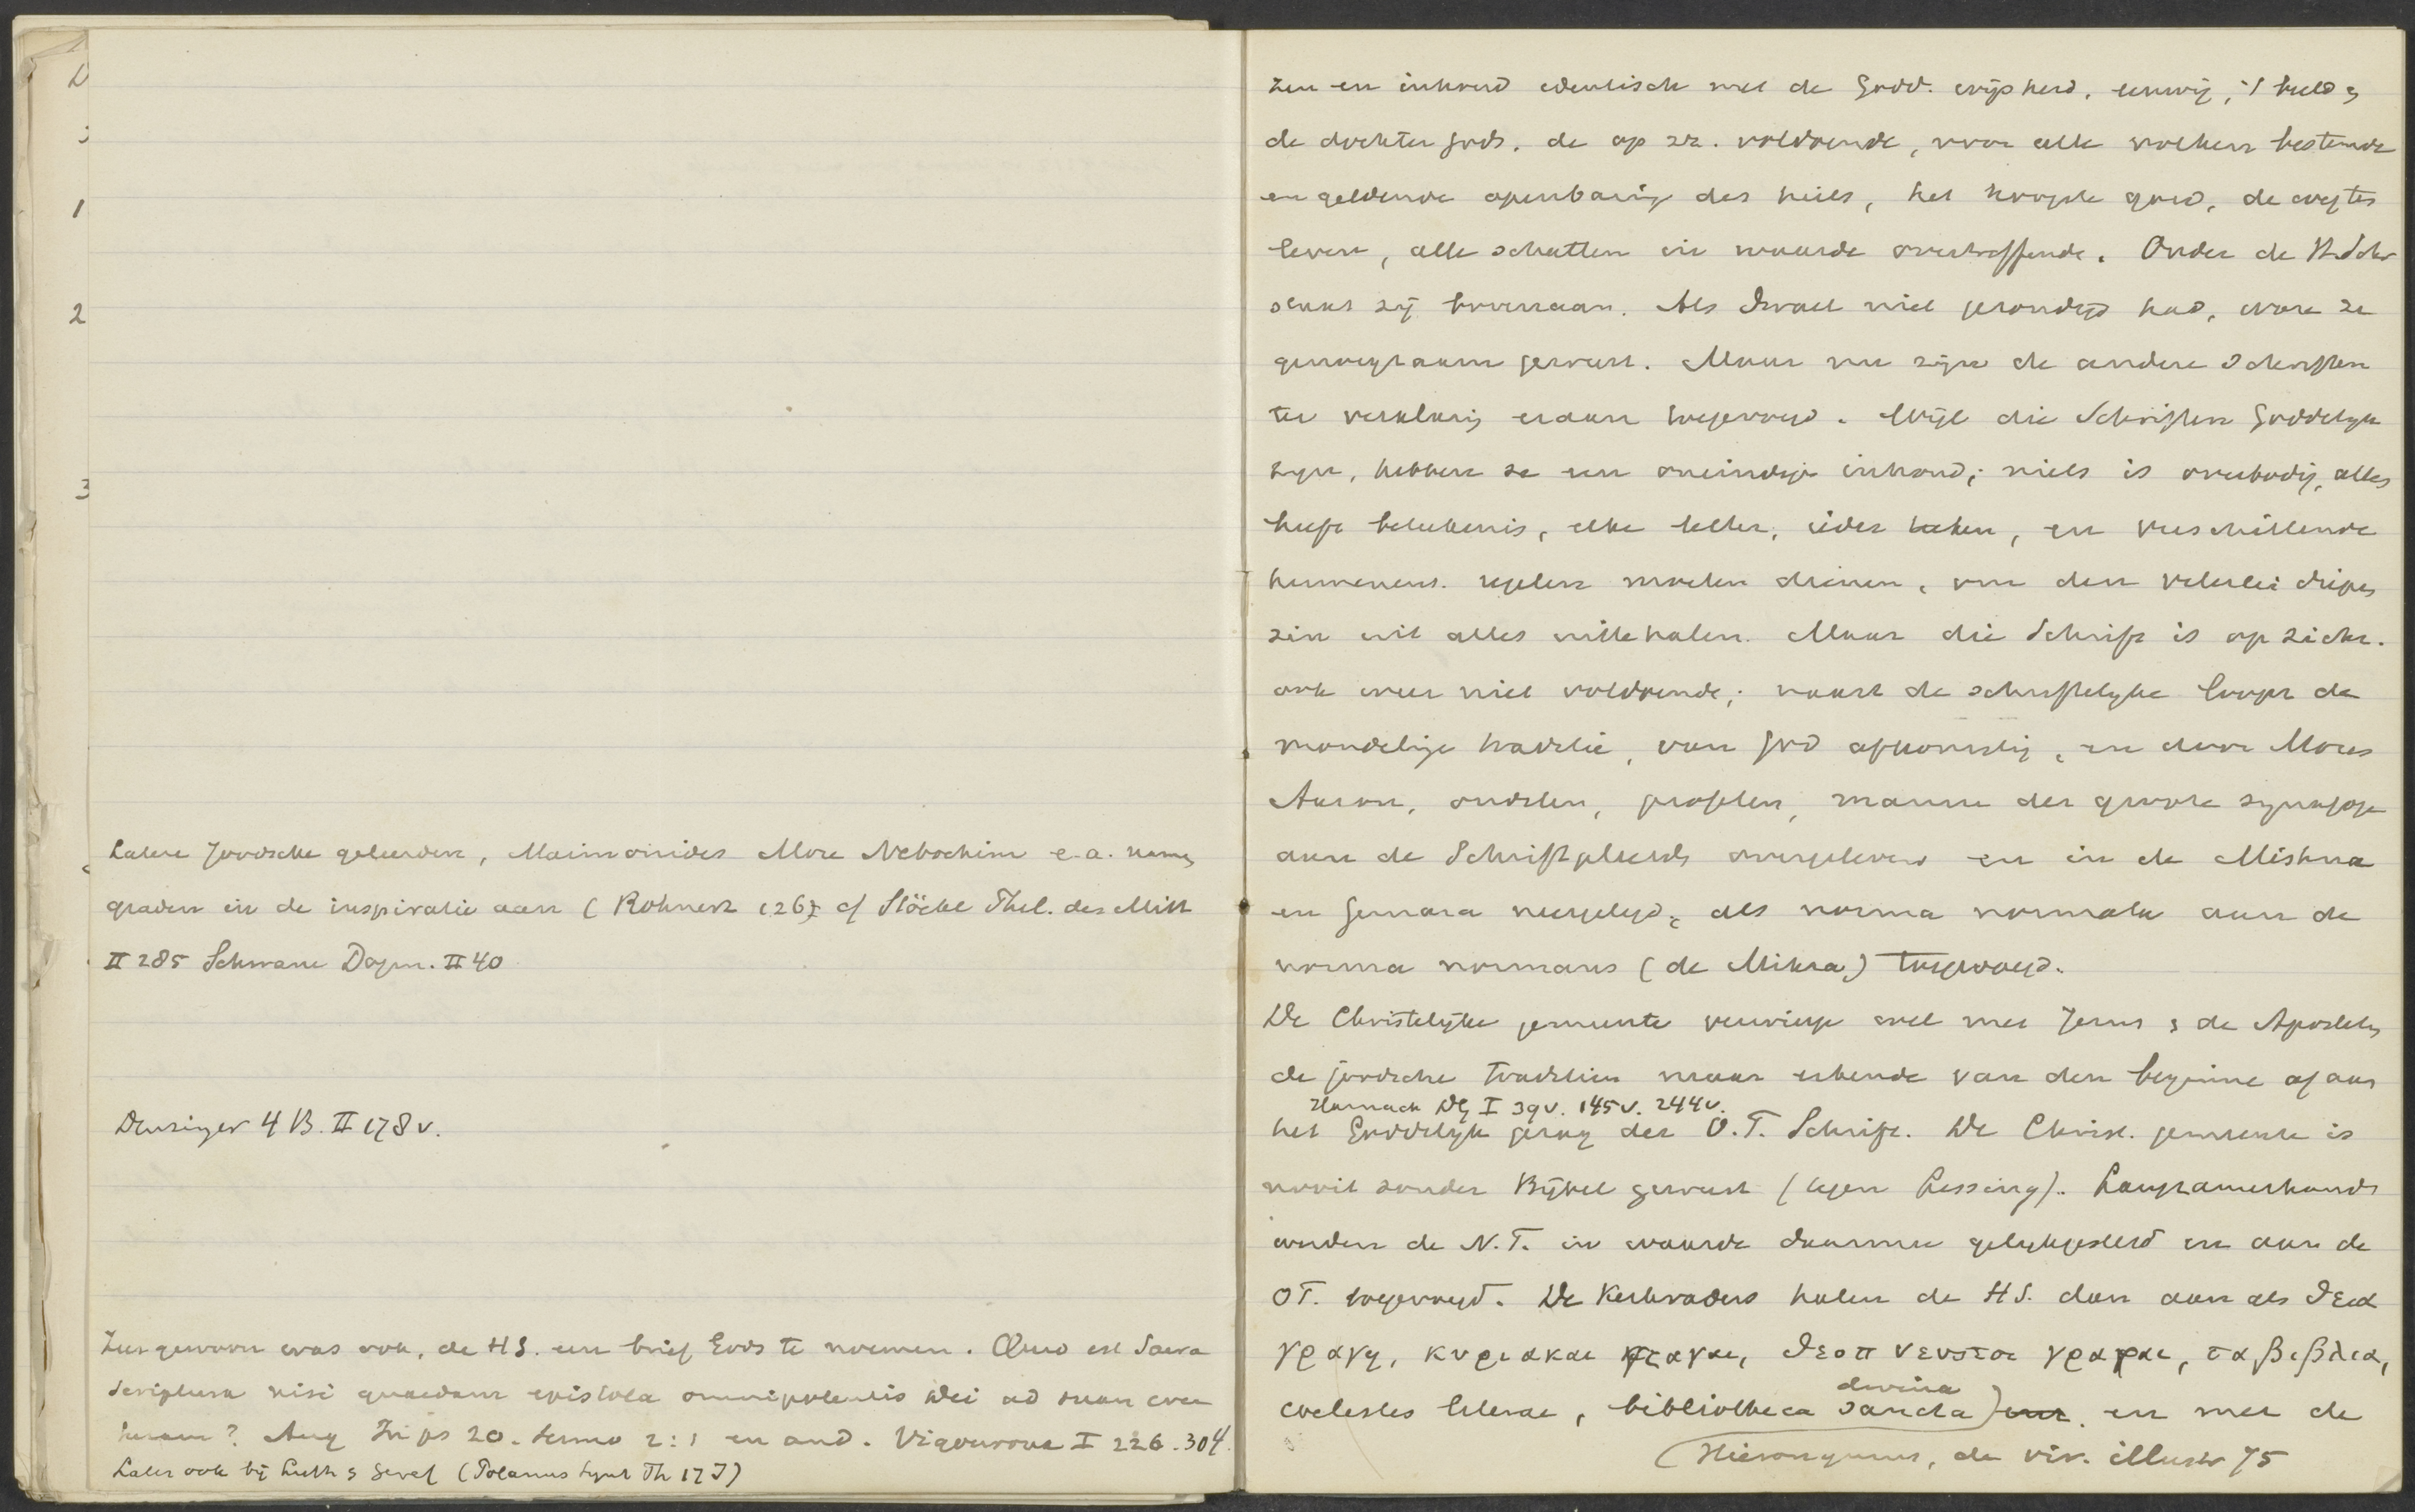 Latere Joodsche geleerden, Maimonides More Nebochim e.a. namen
graden in de inspiratie aan (Rohnert 126) cf Stöckl Phil. des Mitt
II 285 Schwane Dogm. II 40
Denzinger 4 B. II 178 v.
Zeer gewoon was ook, de HS. een brief Gods te noemen. Quid est Sacra
Scriptura nisi quaedam epistola omnipotentis Dei ad suam crea
turam? Aug In ps 20. sermo 2:1 en and. Vigouroux I 226.304.
Later ook bij Luth & Geref (Polanus Synt Th 17 I)
1
2
3
zen en inhoud identisch met de Godd. wijsheid, eeuwig, 't beeld &
de dochter Gods, de op zz. voldoende, voor alle volken bestemde
en geldende openbaring des heils, het hoogste goed, de weg tes
leven, alle schatten in waarde overtreffende. Onder de H. Schr
staat zij bovenaan. Als Israel niet gezondigd had, ware ze
genoegzaam geweest. Maar nu zijn de andere Schriften
ter verklaring eraan toegevoegd. Wijl die Schriften Goddelijk
zijn, hebben ze een oneindige inhoud; niets is overbodig, alles
heeft beteekenis, elke letter, ieder teeken, en verschillende
hermeneut. regelen moeten dienen, om den velerlei diepen
zin uit alles uittehalen. Maar die Schrift is op zichz.
ook weer niet voldoende; naast de schriftelijke loopt de
mondelinge traditie, van God afkomstig, en door Mozes
Aaron, oudsten, profeten, mannen der groote synagoge
aan de Schriftgeleerden overgeleverd en in de Mishna
en Gemara neergelegd, als norma normata aan de
norma normans (de Mikra) toegevoegd.
De Christelijke gemeente verwierp wel met Jezus & de Apostelen
de joodsche traditien maar erkende van den beginne af aan
Harnack DG I 39v. 145v. 244v.
het Goddelijk gezag der O.T. Schrift. De Christ. gemeente is
nooit zonder Bijbel geweest (tegen Lessing). Langzamerhand
werden de N.T. in waarde daarmee gelijkgesteld en aan de
OT. toegevoegd. De Kerkvaders halen de HS. dan aan als θεια
γραφη, κυριακαι γραφαι, θεοπνευστοι γραφαι, τα βιβλια,
divina
coelestes literae, bibliotheca sancta) en met de
(Hieronymus, de vir. illustr 75